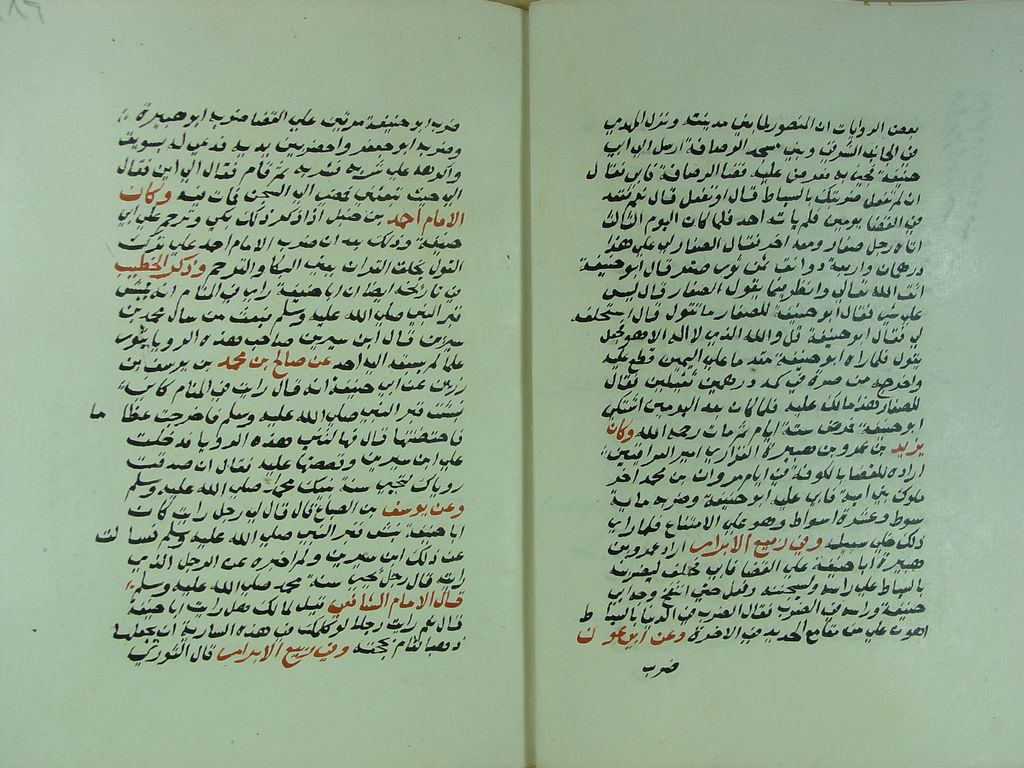 بعض الروايات ان المنصور لما بنى مدينته ونزل المهدي
في الجانب الشرقي وبنى مسجد الرصافة ارسل الى ابي
حنيفة فجي به فعرض عليه قضا الرصافة فابى فقال
ان لم تفعل ضربتك بالسياط قال او تفعل قال نعم فقعد
في القضا يومين فلم ياته احد فلما كان اليوم الثالث
اتاه رجل صفار ومعه اخر فقال الصفار لي على هذا
درهمان واربعة دوانق ثمن تور صفر قال ابو حنيفة
اتق الله تعالى وانظر فيما يقول الصفار قال ليس
علي شي فقال ابو حنيفة للصفار ما تقول قال استحلفه
لي فقال ابو حنيفة قل والله الذي لا اله الا هو فجعل
يقول فلما راه ابو حنيفة معتمدا على اليمين قطع عليه
واخرج من صرة في كمه درهمين ثقيلين فقال
للصفار هذا مالك عليه فلما كان بعد اليومين اشتكى
ابو حنيفة فمرض ستة ايام ثم مات رحمه الله وكان
يزيد بن عمرو بن هبيرة الفزاري امير العراقين
اراده للقضا بالكوفة في ايام مروان بن محمد اخر
ملوك بني امية فابى عليه ابو حنيفة وضربه ماية
سوط وعشرة اسواط وهو على الامتناع فلما راى
ذلك خلى سبيله وفي ربيع الابرار اراد عمرو بن
هبيرة ابا حنيفة على القضا فابى فحلف ليضربنه
بالسياط على راسه وليسجننه وفعل حتى انتفخ وجه ابي
حنيفة وراسه من الضرب فقال الضرب في الدنيا بالسياط
اهون علي من مقامع الحديد في الاخرة وعن ابي عون
ضرب
ضرب ابو حنيفة مرتين على القضا ضربه ابو هبيرة
وضربه ابو جعفر واحضر بين يديه فدعى له بسويق
واكرهه على شربه فشربه ثم قام فقال الى اين فقال
الى حيث تعينني فمضى الى السجن فمات فيه وكان
الامام احمد بن حنبل اذا ذكر ذلك بكى وترحم على ابي
حنيفة وذلك بعد ان ضرب الامام احمد على ترك
القول بخلق القران يعني البكا والترحم وذكر الخطيب
في تاريخه ايضا ان ابا حنيفة راى في المنام انه ينبش
قبر النبي صلى الله عليه وسلم فبعث من سال محمد بن
سيرين قال ابن سيرين صاحب هذه الرويا يثور
علما لم يسبقه اليه احد عن صالح بن محمد بن يوسف بن
رزين عن ابي حنيفة انه قال رايت في المنام كاني
نبشت قبر النبي صلى الله عليه وسلم فاخرجت عظاما
فاحتضنتها قال فهالتني هذه الرويا فدخلت
على ابن سيرين وقصصتها عليه فقال ان صدقت
روياك لتحيين سنة نبيك محمد صلى الله عليه وسلم
وعن يوسف بن الصباغ قال قال لي رجل رايت كان
ابا حنيفة نبش قبر النبي صلى الله عليه وسلم فسالت
عن ذلك ابن سيرين ولم اخبره عن الرجل الذي
رايت قال رجل يحيي سنة محمد صلى الله عليه وسلم
قال الامام الشافعي قيل لمالك هل رايت ابا حنيفة
قال نعم رايت رجلا لو كلمك في هذه السارية ان يجعلها
ذهبا لقام بحجته وفي ربيع الابرار قال الثوري